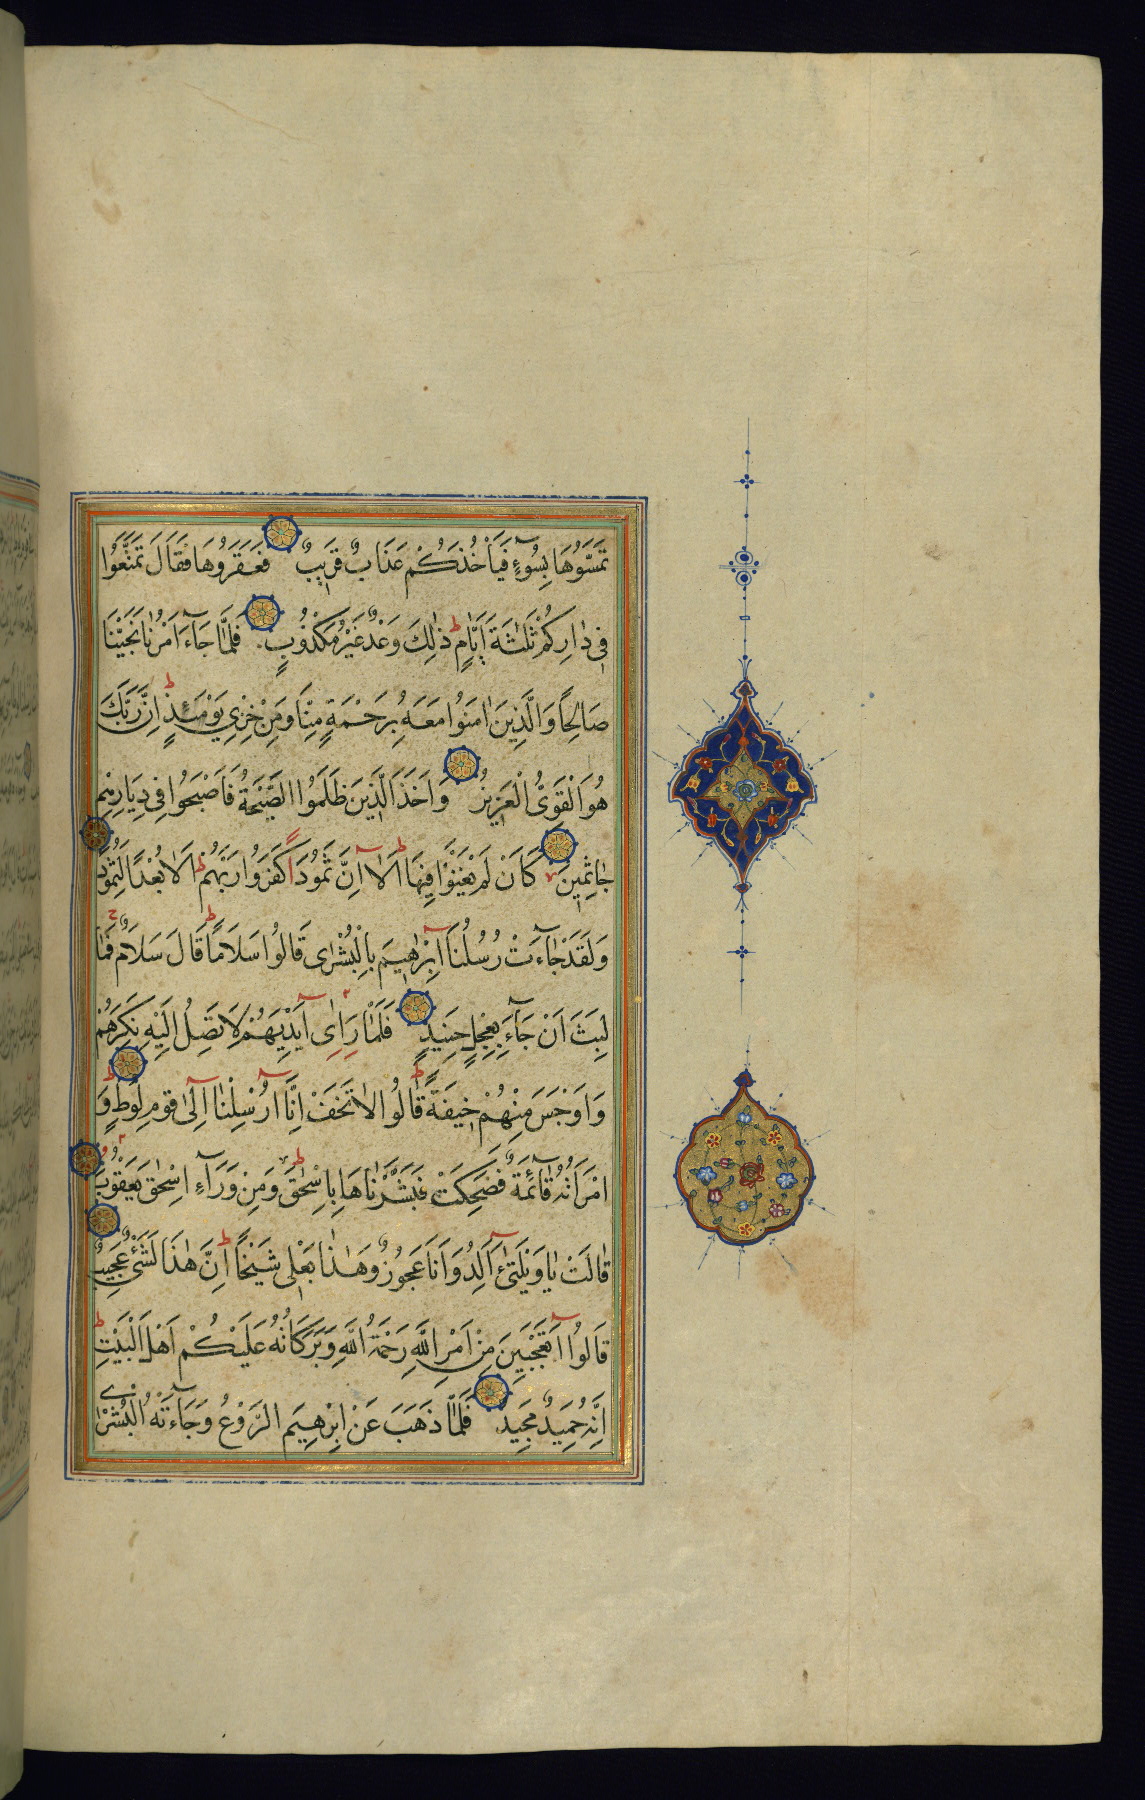 تَمَسُّوهَا بِسُوٓءٍ فَيَأْخُذَكُمْ عَذَابٌ قَرِيبٌ فَعَقَرُوهَا فَقَالَ تَمَتَّعُوا
فِي دَارِكُمْ ثَلٰثَةَ اَيَّامٍ ذٰلِكَ وَعْدٌ غَيْرُ مَكْذُوبٍ فَلَمَّا جَآءَ اَمْرُنَا نَجَّيْنَا
صَالِحًا وَالَّذِينَ اٰمَنُوا مَعَهُ بِرَحْمَةٍ مِنَّا وَمِنْ خِزْيِ يَوْمَئِذٍ اِنَّ رَبَّكَ
هُوَ الْقَوِيُّ الْعَزِيزُ وَاَخَذَ الَّذِينَ ظَلَمُوا الصَّيْحَةُ فَاَصْبَحُوا فِي دِيَارِهِمْ
جَاثِمِينَ كَاَنْ لَمْ يَغْنَوْا فِيهَا اَلَآ اِنَّ ثَمُودَا كَفَرُوا رَبَّهُمْ اَلَا بُعْدًا لِثَمُودَ
وَلَقَدْ جَآءَتْ رُسُلُنَآ اِبْرٰهِيمَ بِالْبُشْرٰى قَالُوا سَلَامًا قَالَ سَلَامٌ فَمَا
لَبِثَ اَنْ جَآءَ بِعِجْلٍ حَنِيذٍ فَلَمَّا رَاٰى اَيْدِيَهُمْ لَا تَصِلُ اِلَيْهِ نَكِرَهُمْ
وَاَوْجَسَ مِنْهُمْ خِيفَةً قَالُوا لَا تَخَفْ اِنَّآ اُرْسِلْنَآ اِلٰى قَوْمِ لُوطٍ وَ
امْرَاَتُهُ قَآئِمَةٌ فَضَحِكَتْ فَبَشَّرْنَاهَا بِاِسْحٰقَ وَمِنْ وَرَآءِ اِسْحٰقَ يَعْقُوبَ
قَالَتْ يَا وَيْلَتٰىٓ ءَاَلِدُ وَاَنَا عَجُوزٌ وَهٰذَا بَعْلِي شَيْخًا اِنَّ هٰذَا لَشَيْءٌ عَجِيبٌ
قَالُوٓا اَتَعْجَبِينَ مِنْ اَمْرِ اللّٰهِ رَحْمَةُ اللّٰهِ وَبَرَكَاتُهُ عَلَيْكُمْ اَهْلَ الْبَيْتِ
اِنَّهُ حَمِيدٌ مَجِيدٌ فَلَمَّا ذَهَبَ عَنْ اِبْرٰهِيمَ الرَّوْعُ وَجَآءَتْهُ الْبُشْرٰى